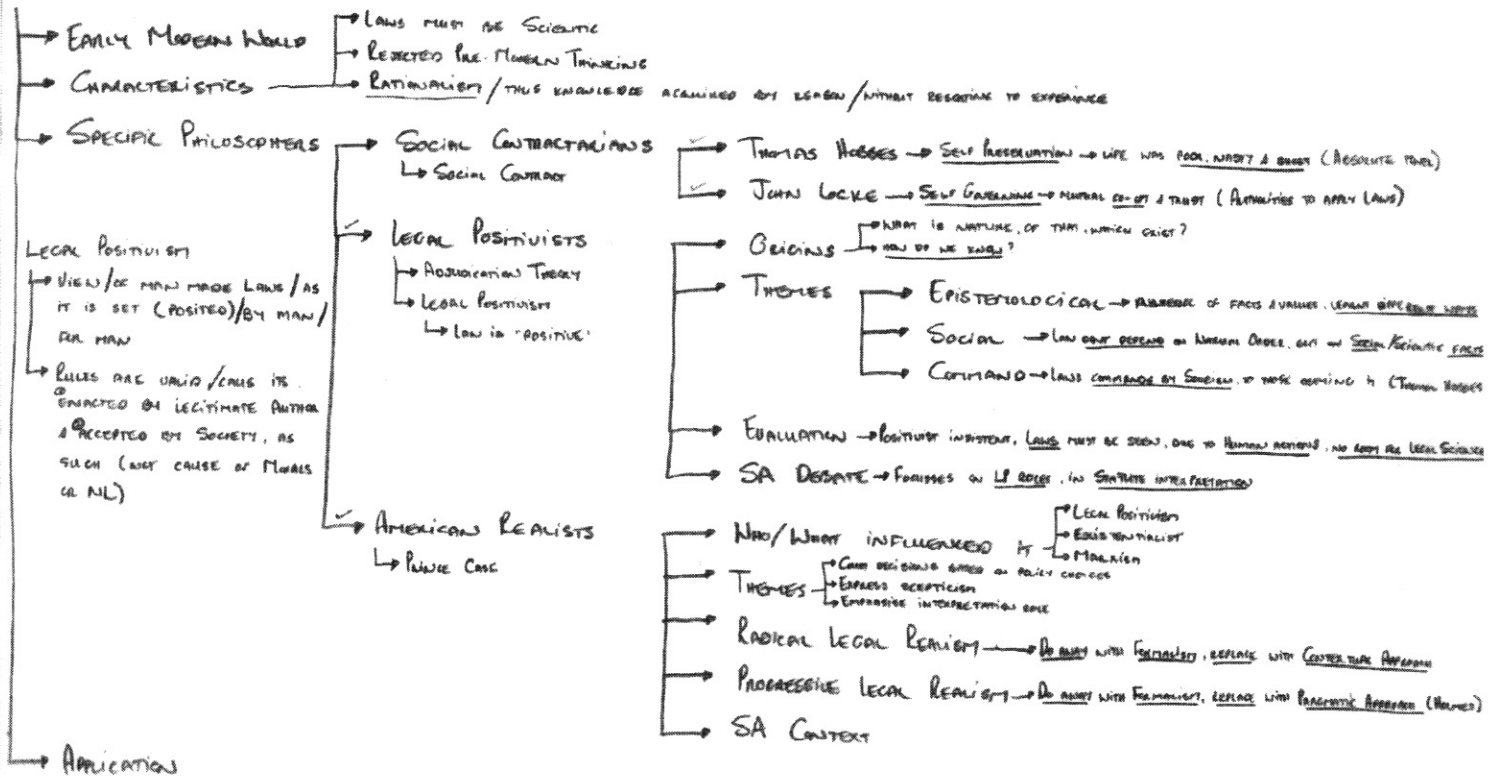 Early Modern World
Characteristics
Laws must be Scientic
Rejected Pre-Modern Thinking
Rationalism / thus knowledge acquired by reason / without resorting to experience
Specific Philosophers
Social Contractarians
Social Contract
Thomas Hobbes → Self Preservation → life was poor, nasty & short (Absolute Power)
John Locke → Self Governing → mutual co-op & trust (Authorities to apply laws)
Legal Positivists
Adjudication Theory
Legal Positivism
Law is 'positive'
Origins
What is nature, of that, which exist?
How do we know?
Themes
Epistemological → of facts & values, learnt different ways
Social → Law dont depend on Natural Order, but on Social/Scientic facts
Command → Laws commands by Soverign, to those obeying it (Thomas Hobbes
Evaluation → Positivist insistent, Laws must be seen, due to Human actions, no room for Legal Science
SA Debate → Focusses on LP roles, in Statute interpretation
Legal Positivism
View/of man made laws/as
it is set (posited)/by man/
for man
Rules are valid/caus its
① enacted by legitimate author
& ② accepted by society, as
such (not cause of Morals
or NL)
American Realists
Prince Case
Who/What influenced it
Legal Positivism
Existentialist
Marxism
Themes
Court decisions based on policy choices
Express scepticism
Emphasise interpretation role
Radical Legal Realism → Do away with Formalism, replace with Contextual Approach
Progressive Legal Realism → Do away with Formalism, replace with Pragmatic Approach (Holmes)
SA Context
Application